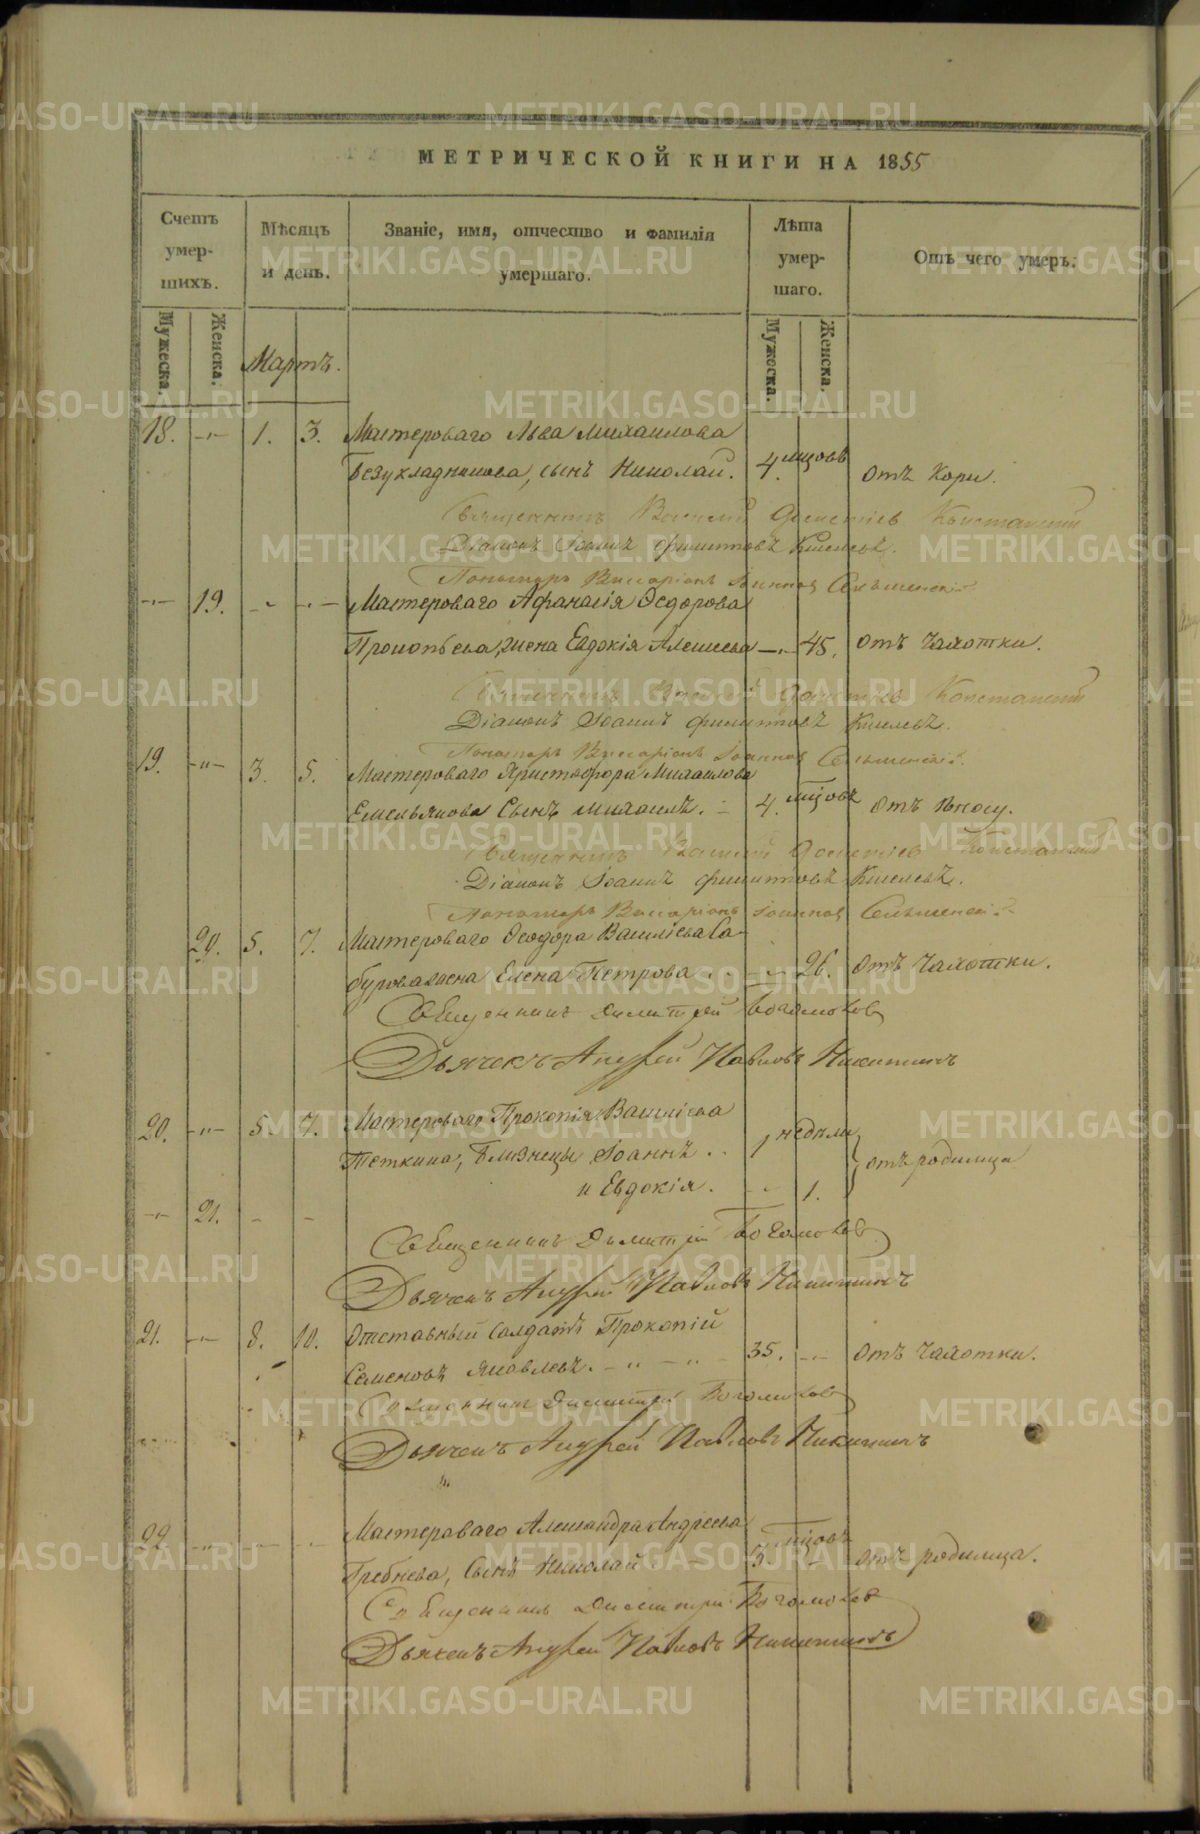 МЕТРИЧЕСКОЙ КНИГИ НА 1855
Счетъ умер-шихъ.
Мѣсяцъ и день.
Званіе, имя, отчество и фамилія умершаго.
Лѣта умер-шаго.
Отъ чего умеръ.
Мужеска. Женска. Мартъ. Мужеска. Женска.
18. -„- 1. 3. Мастероваго Льва Михаилова
Безукладникова, сынъ Николай. 4. мцовъ отъ Кори.
Священникъ Василій Констанскій
Діаконъ Іоаннъ Филипповъ Киселевъ.
Пономарь Виссаріонъ Іоанновъ
-„- 19. -„- -„- Мастероваго Аѳанасія Ѳедорова
Прокопьева, жена Евдокія Алексеева -„- 45. отъ Чахотки.
Священникъ Василій Констанскій
Діаконъ Іоаннъ Филипповъ Киселевъ.
Пономарь Виссаріонъ Іоанновъ
19. -„- 3. 5. Мастероваго Христофора Михаилова
Емельянова Сынъ Михаилъ. 4. мцовъ отъ Поносу.
Священникъ Василій Констанскій
Діаконъ Іоаннъ Филипповъ Киселевъ.
Пономарь Виссаріонъ Іоанновъ
20. 5. 7. Мастероваго Ѳеодора Василіева Са-
бурова жена Елена Петрова -„- 26. отъ Чахотки.
Священникъ Димитрій Богомоловъ
Дьячекъ Андрей Павловъ Никитинъ
20. -„- 5. 7. Мастероваго Прокопія Василіева
Теткина, Близнецы Іоаннъ 1 недѣли отъ родимца
и Евдокія. -„- 1.
-„- 21. - -
Священникъ Димитрій Богомоловъ
Дьячекъ Андрей Павловъ Никитинъ
21. -„- 8. 10. Отставный Салдатъ Прокопій
Семеновъ Яковлевъ. -„- -„- 35. -„- отъ Чахотки.
Священникъ Димитрій Богомоловъ
Дьячекъ Андрей Павловъ Никитинъ
22. -„- Мастероваго Александра Андреева
Гребнева, Сынъ Николай 3. мцовъ отъ родимца.
Священникъ Димитрій Богомоловъ
Дьячекъ Андрей Павловъ Никитинъ
METRIKI.GASO-URAL.RU